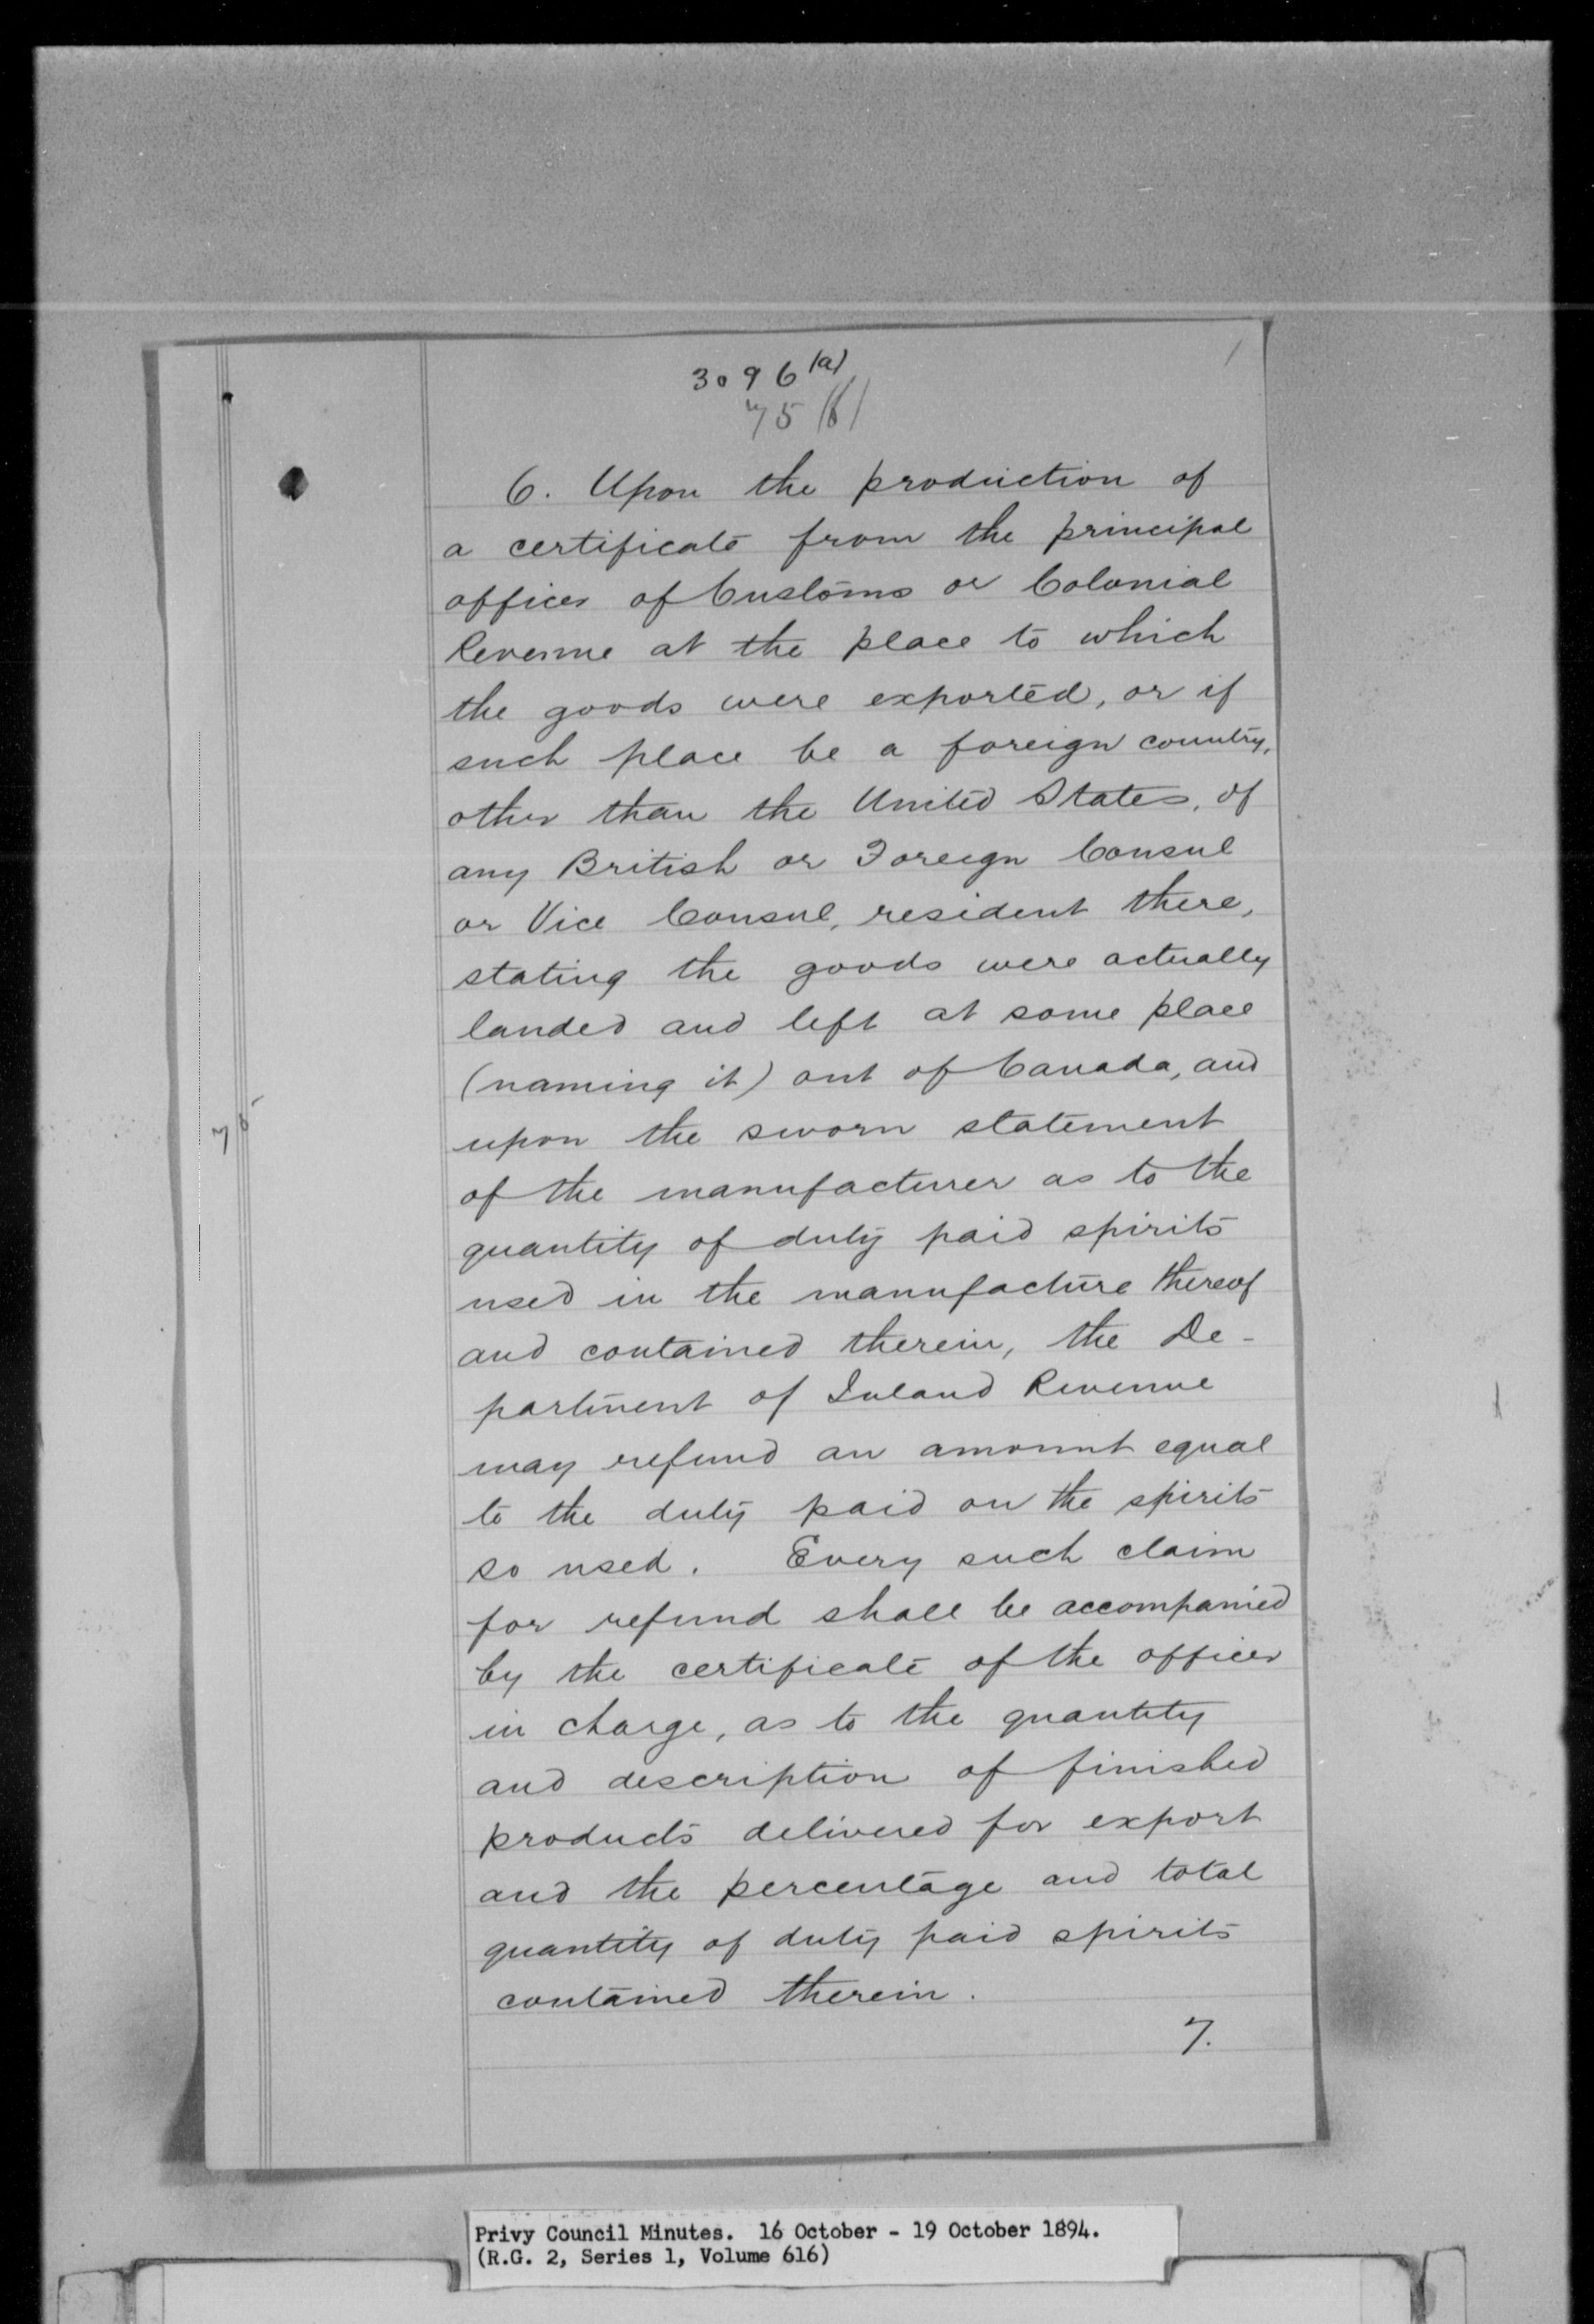 3096 (a)
75 (6)
6. Upon the production of
a certificate from the principal
officer of Customs or Colonial
Revenue at the place to which
the goods were exported, or if
such place be a foreign country,
other than the United States, of
any British or Foreign Consul
or Vice Consul, resident there,
stating the goods were actually
landed and left at some place
(naming it) out of Canada, and
upon the sworn statement
of the manufacturer as to the
quantity of duty paid spirits
used in the manufacture thereof
and contained therein, the De-
partment of Inland Revenue
may refund an amount equal
to the duty paid on the spirits
so used. Every such claim
for refund shall be accompanied
by the certificate of the officer
in charge, as to the quantity
and description of finished
products delivered for export
and the percentage and total
quantity of duty paid spirits
contained therein.
7.
Privy Council Minutes. 16 October - 19 October 1894.
(R.G. 2, Series 1, Volume 616)